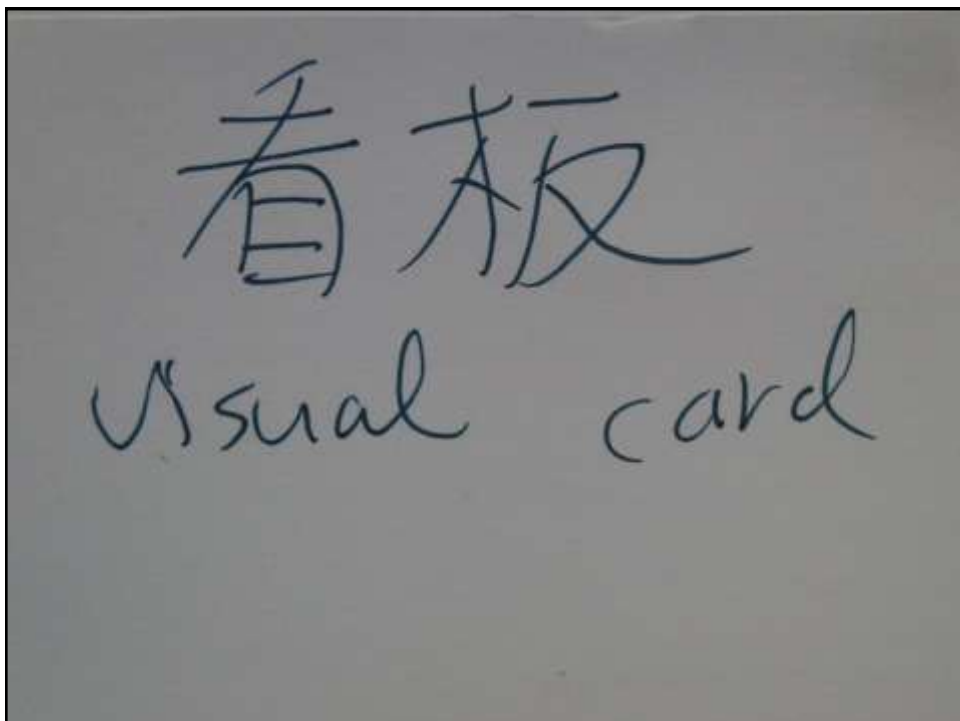 看板
visual card